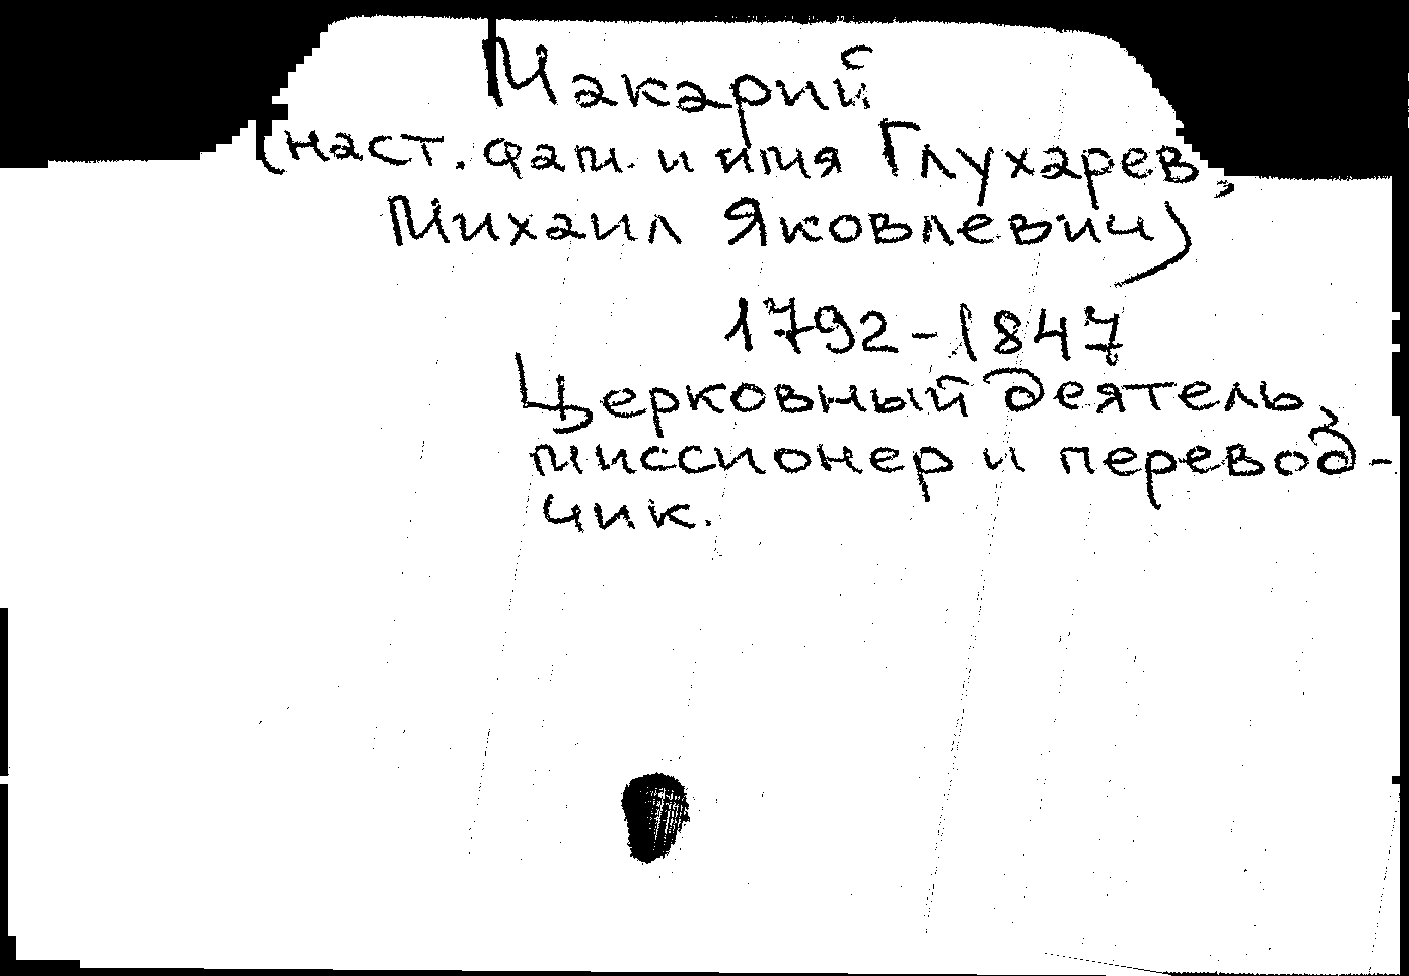 Макарий
(наст. фам. и имя Глухарев,
Михаил Яковлевич)
1792-1847
Церковный деятель,
миссионер и перевод-
чик.